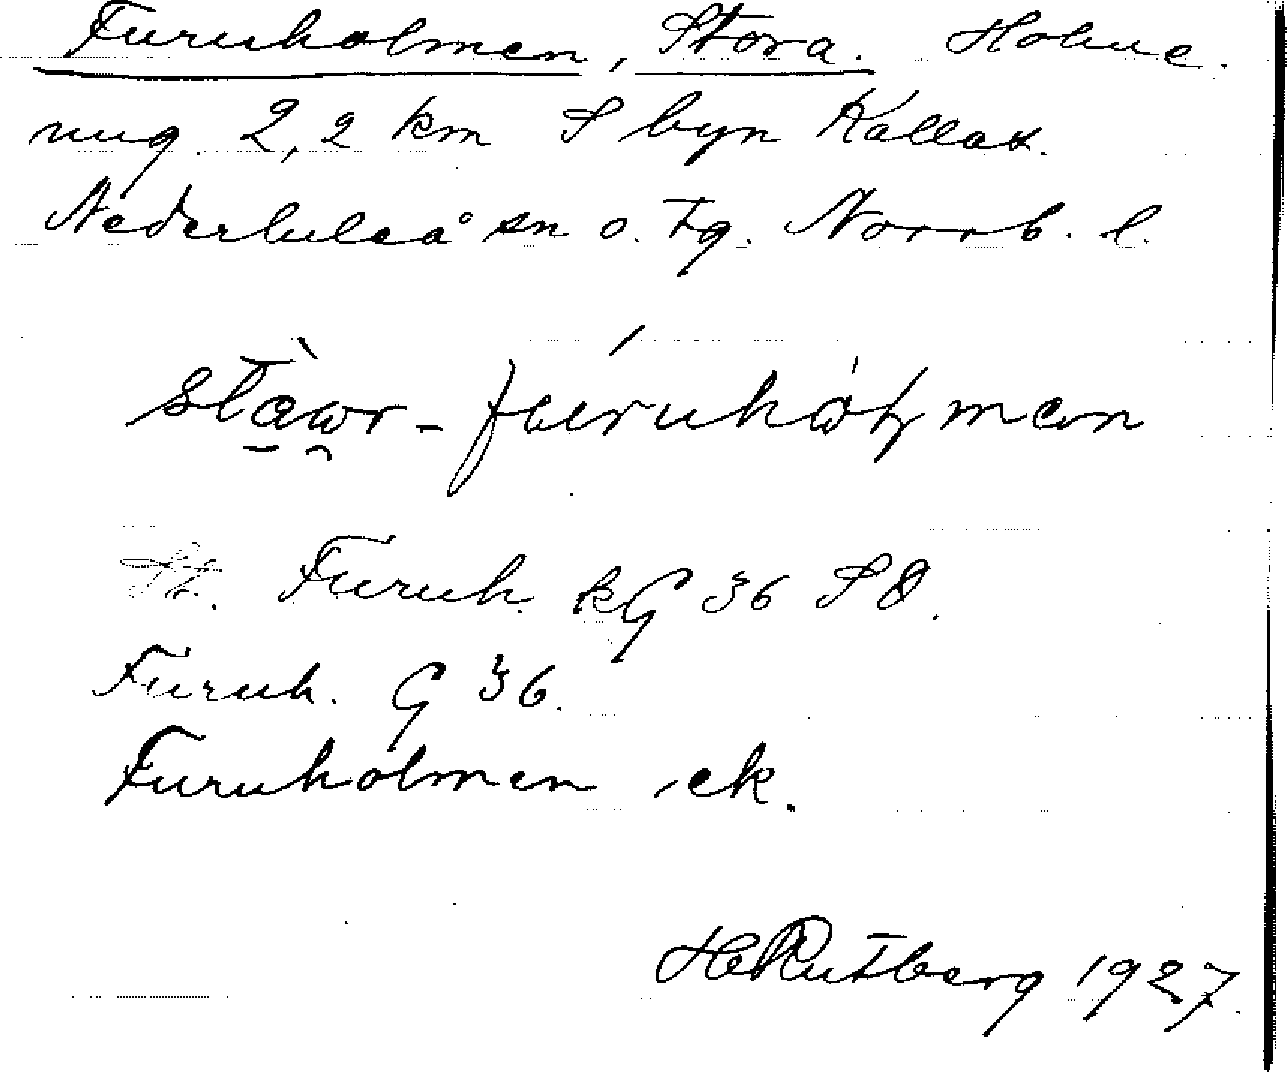 Furuholmen, Stora. Holme
ung. 2,2 km S byn Kallax.
Nederluleå sn o. tg. Norrb. l.
stàwr-furuhòłmen
St. Furuh. kG 36 SO.
Furuh. G 36.
Furuholmen ek.
H Rutberg 1927.